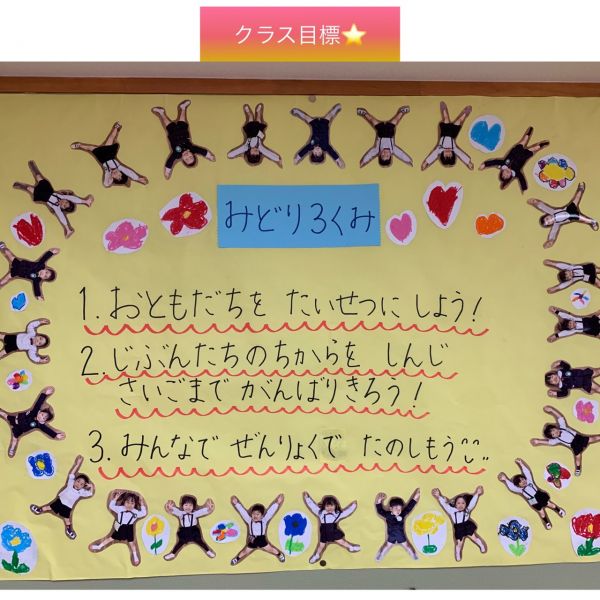 クラス目標⭐
みどり3くみ
1. おともだちを たいせつに しよう!
2. じぶんたちのちからを しんじ
さいごまで がんばりきろう!
3. みんなで ぜんりょくで たのしもう